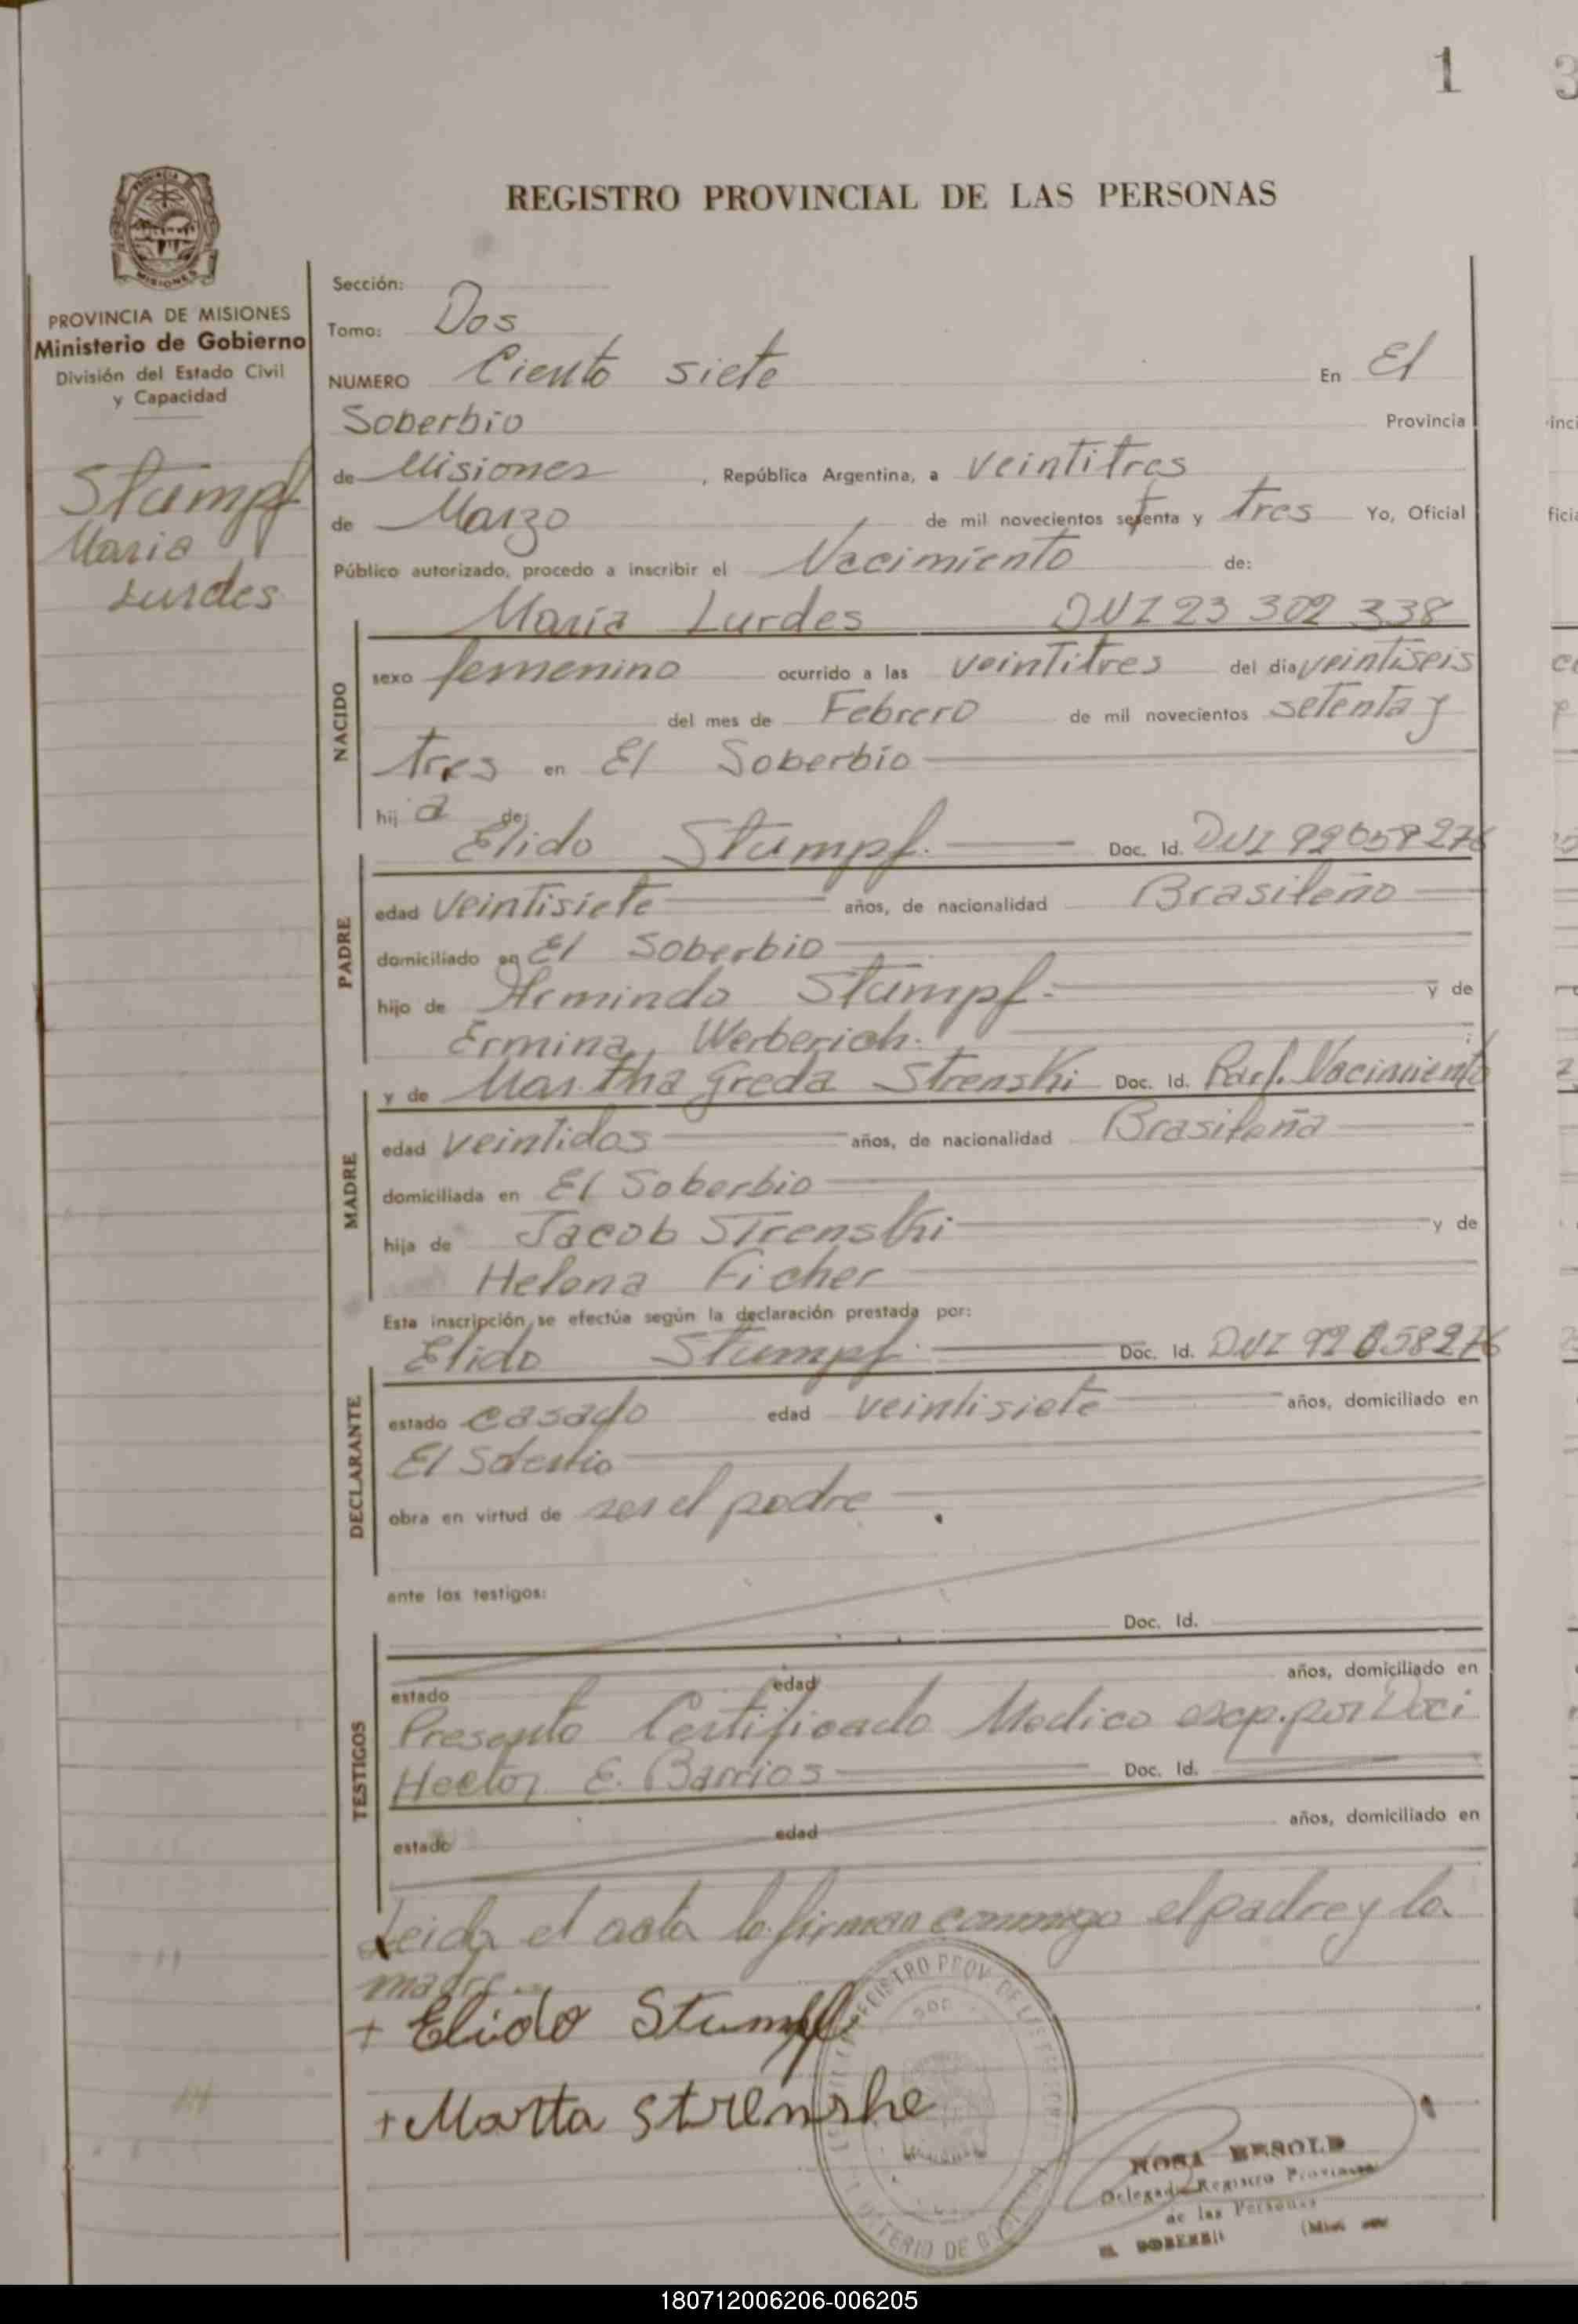 1
3
REGISTRO PROVINCIAL DE LAS PERSONAS
PROVINCIA DE MISIONES
Ministerio de Gobierno
División del Estado Civil
y Capacidad
Stumpf
Maria
Lurdes
Sección:
Tomo: Dos
NUMERO Ciento siete En El
Soberbio Provincia
de Misiones, República Argentina, a veintitres
de Marzo de mil novecientos setenta y tres Yo, Oficial
Público autorizado, procedo a inscribir el Nacimiento de:
María Lurdes DNI 23 302 338
NACIDO
sexo femenino ocurrido a las veintitres del dia veintiseis
del mes de Febrero de mil novecientos setenta y
tres en El Soberbio
hij a de:
Elido Stumpf. Doc. Id. DNI 92058276
PADRE
edad veintisiete años, de nacionalidad Brasileño
domiciliado en El Soberbio
hijo de Armindo Stumpf. y de
Ermina Werberich.
y de Martha Greda Strenski Doc. Id. Part. Nacimiento
MADRE
edad veintidos años, de nacionalidad Brasileña
domiciliada en El Soberbio
hija de Jacob Strenski y de
Helena Ficher
Esta inscripción se efectúa según la declaración prestada por:
Elido Stumpf. Doc. Id. DNI 92058276
DECLARANTE
estado casado edad veintisiete años, domiciliado en
El Soberbio
obra en virtud de ser el padre
ante los testigos:
Doc. Id.
TESTIGOS
estado edad años, domiciliado en
Presento Certificado Medico esep. por Doct
Hector E. Barrios Doc. Id.
estado edad años, domiciliado en
Leida el acta la firman conmigo el padre y la
madre.
+ Elido Stumpf
+ Marta Strenshe
ROSA BESOLD
Delegada Registro Provincial
de las Personas
EL SOBERBIO
180712006206-006205